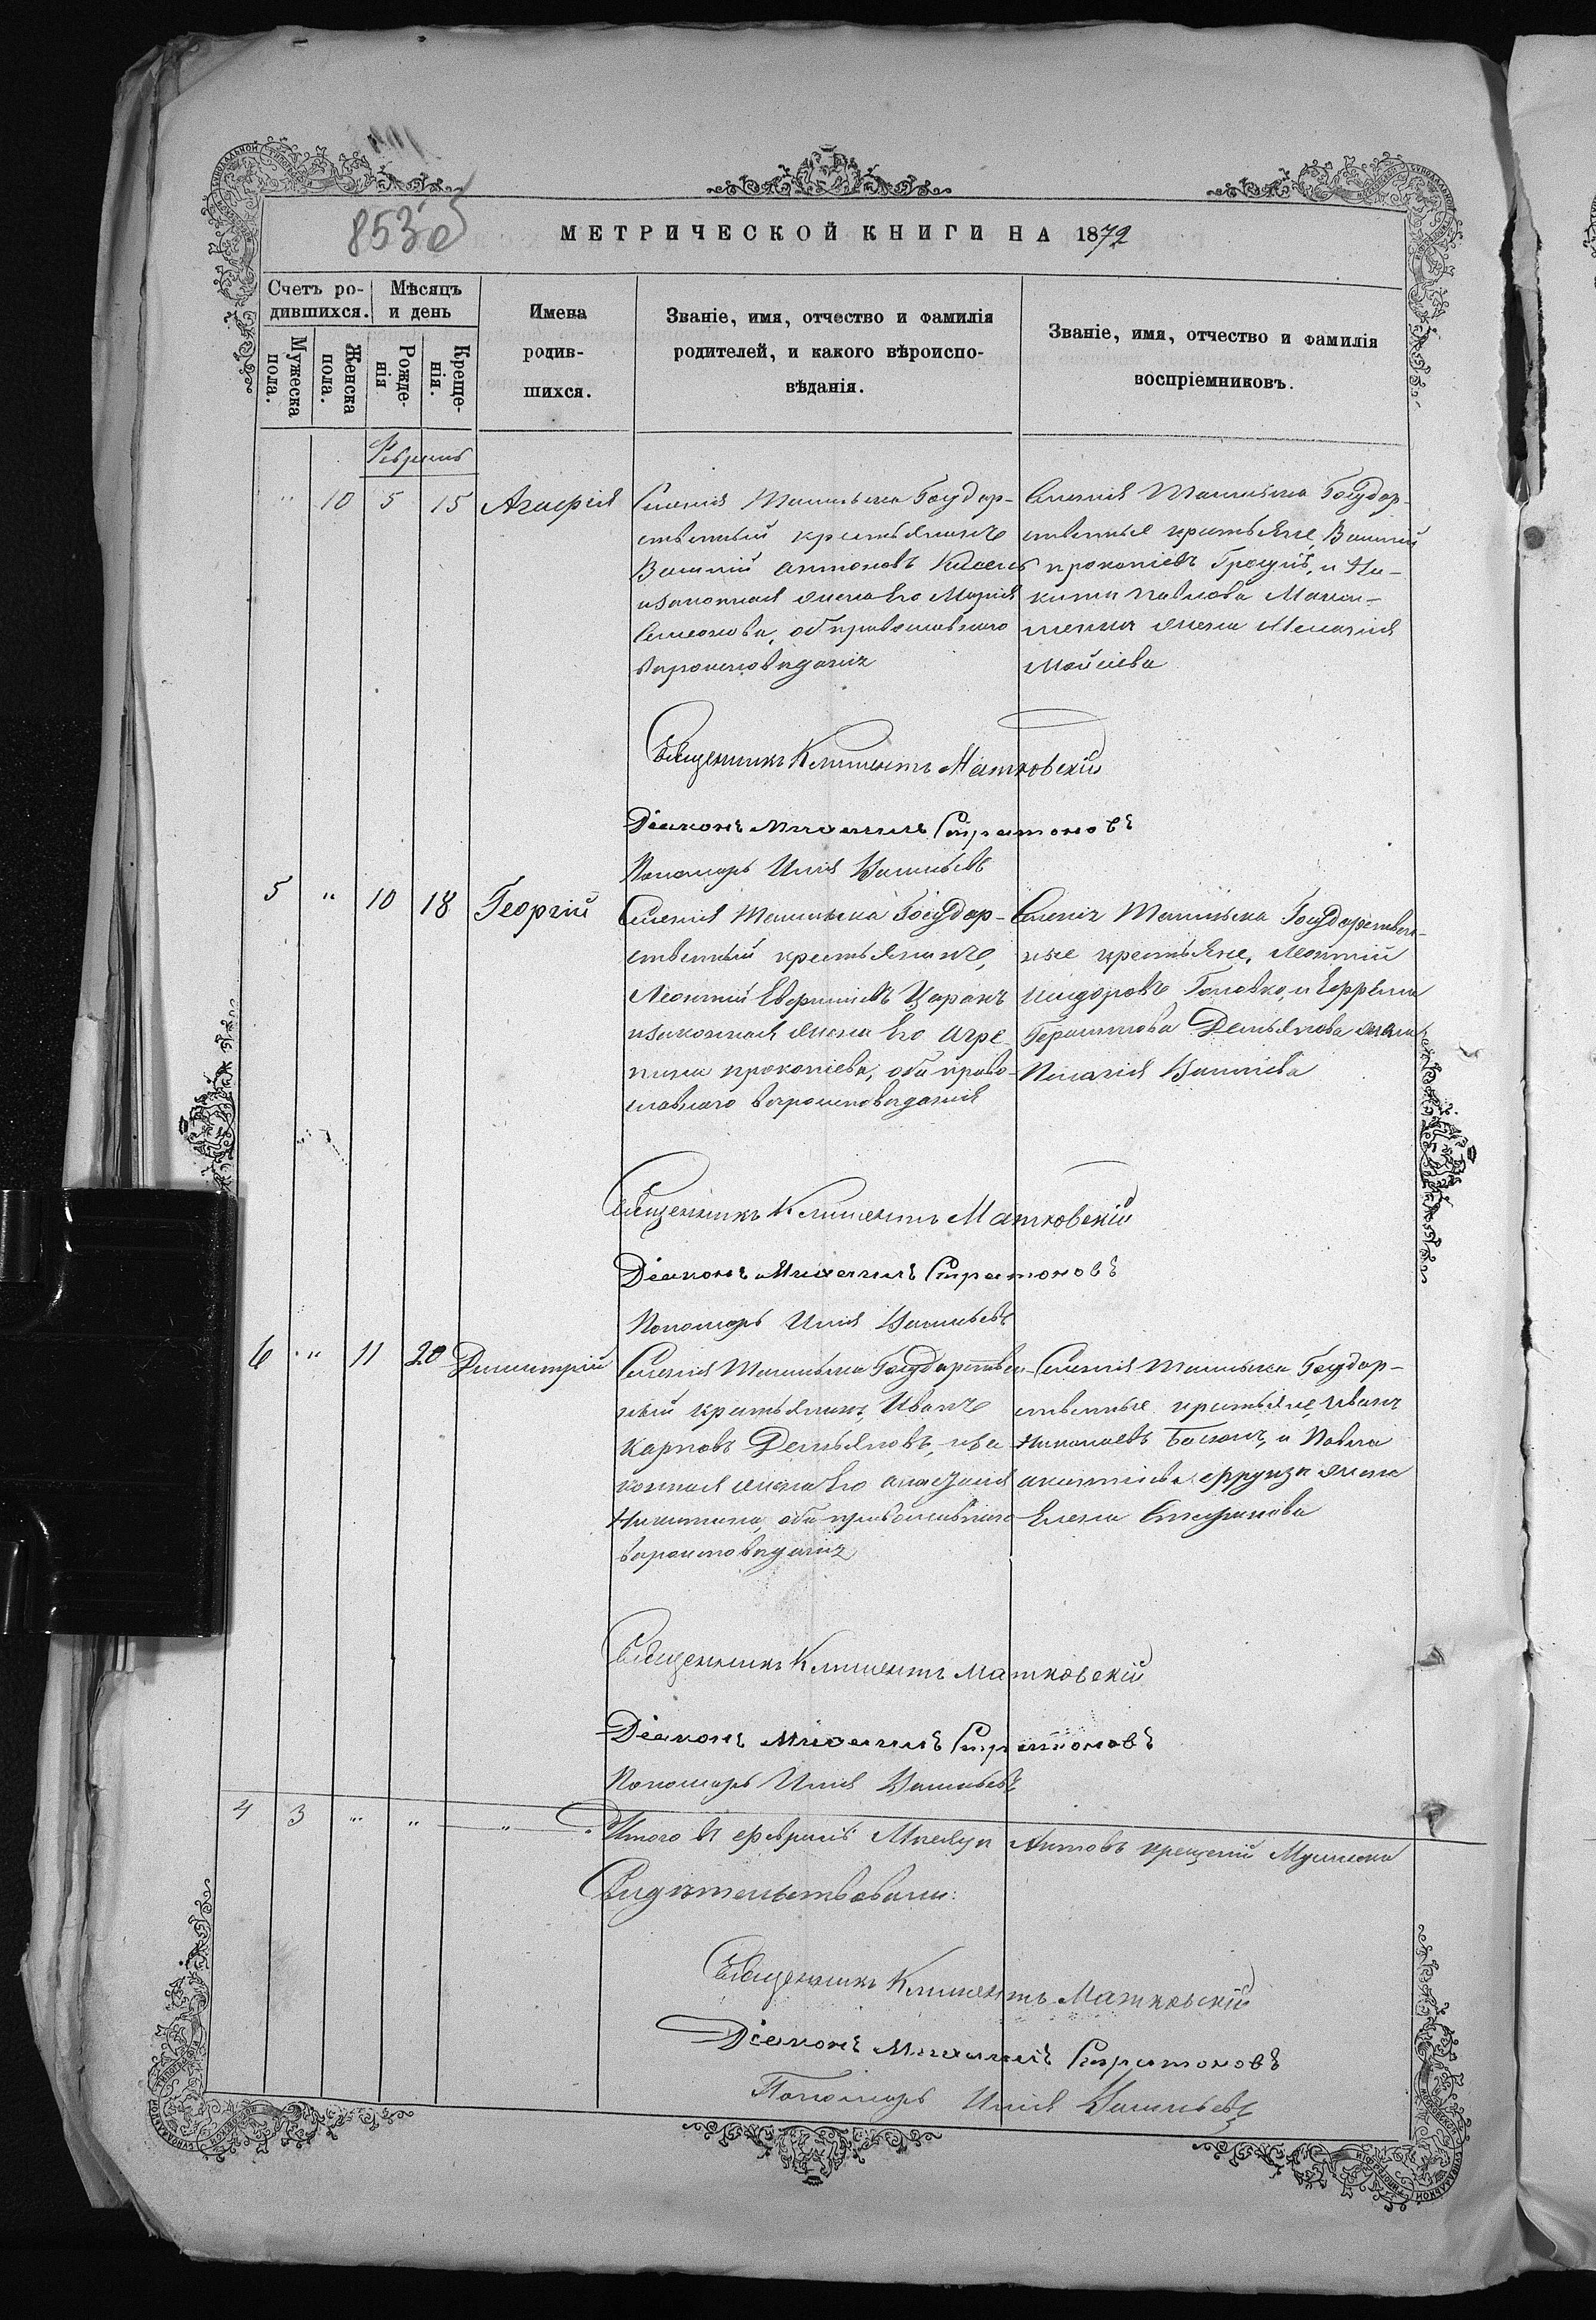 853 об
МЕТРИЧЕСКОЙ КНИГИ НА 1872
Счетъ ро-
дившихся.
Мѣсяцъ
и день
Мужеска
пола.
Женска
пола.
Рожде-
нія
Креще-
нія.
Имена
родив-
шихся.
Званіе, имя, отчество и фамилія
родителей, и какого вѣроиспо-
вѣданія.
Званіе, имя, отчество и фамилія
воспріемниковъ.
Февраль
" 10 5 15 Агафія
Селенія Государ-
ственный крестьянинъ
Василій Антоновъ Кисель
изаконная жена Его Марія
Семенова, об православнаго
вѣроисповѣданія
Селенія Государ-
ственныя крестьяне, Василій
прокопіевъ и Ни-
кити Павлова
жена
Моисіева
Священникъ Климентъ Матковскій
Діаконъ Михаилъ Стратоновъ
Пономарь Илія Васильевъ
5 " 10 18 Георгій
Селенія Государ-
ственный крестьянинъ,
Леонтій Царанъ
изаконная жена Его Агре-
пина прокопіева, оба право-
славнаго вѣроисповѣданія
Селенія Государствен-
ные крестьяне, Леонтій
исидоровъ Головко, и Ефрема
Герасимова Демьянова жена
Пелагія Васильева
Священникъ Климентъ Матковскій
Діаконъ Михаилъ Стратоновъ
Пономарь Илія Васильевъ
6 " 11 20 Димитрій
Селенія Государствен-
ный крестьянинъ, Иванъ
Карповъ Демьяновъ, иза-
конная жена Его анастасія
Никитина, оба православнаго
вѣроисповѣданія
Селенія Государ-
ственные крестьяне, иванъ
Николаевъ и Павла
жена
Елена Стефанова
Священникъ Климентъ Матковскій
Діаконъ Михаилъ Стратоновъ
Пономарь Илія Васильевъ
4 3 " " "
Итого въ февралѣ Мѣсяцѣ Актовъ крещеній Мужеска
Свидѣтельствовали:
Священникъ Климентъ Матковскій
Діаконъ Михаилъ Стратоновъ
Пономарь Илія Васильевъ